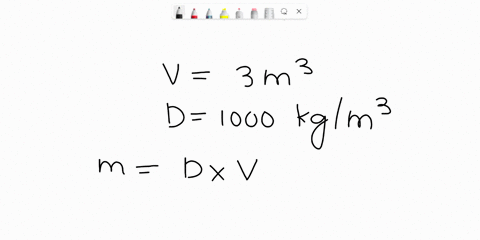 V = 3 m³
D = 1000 kg/m³
m = D x V